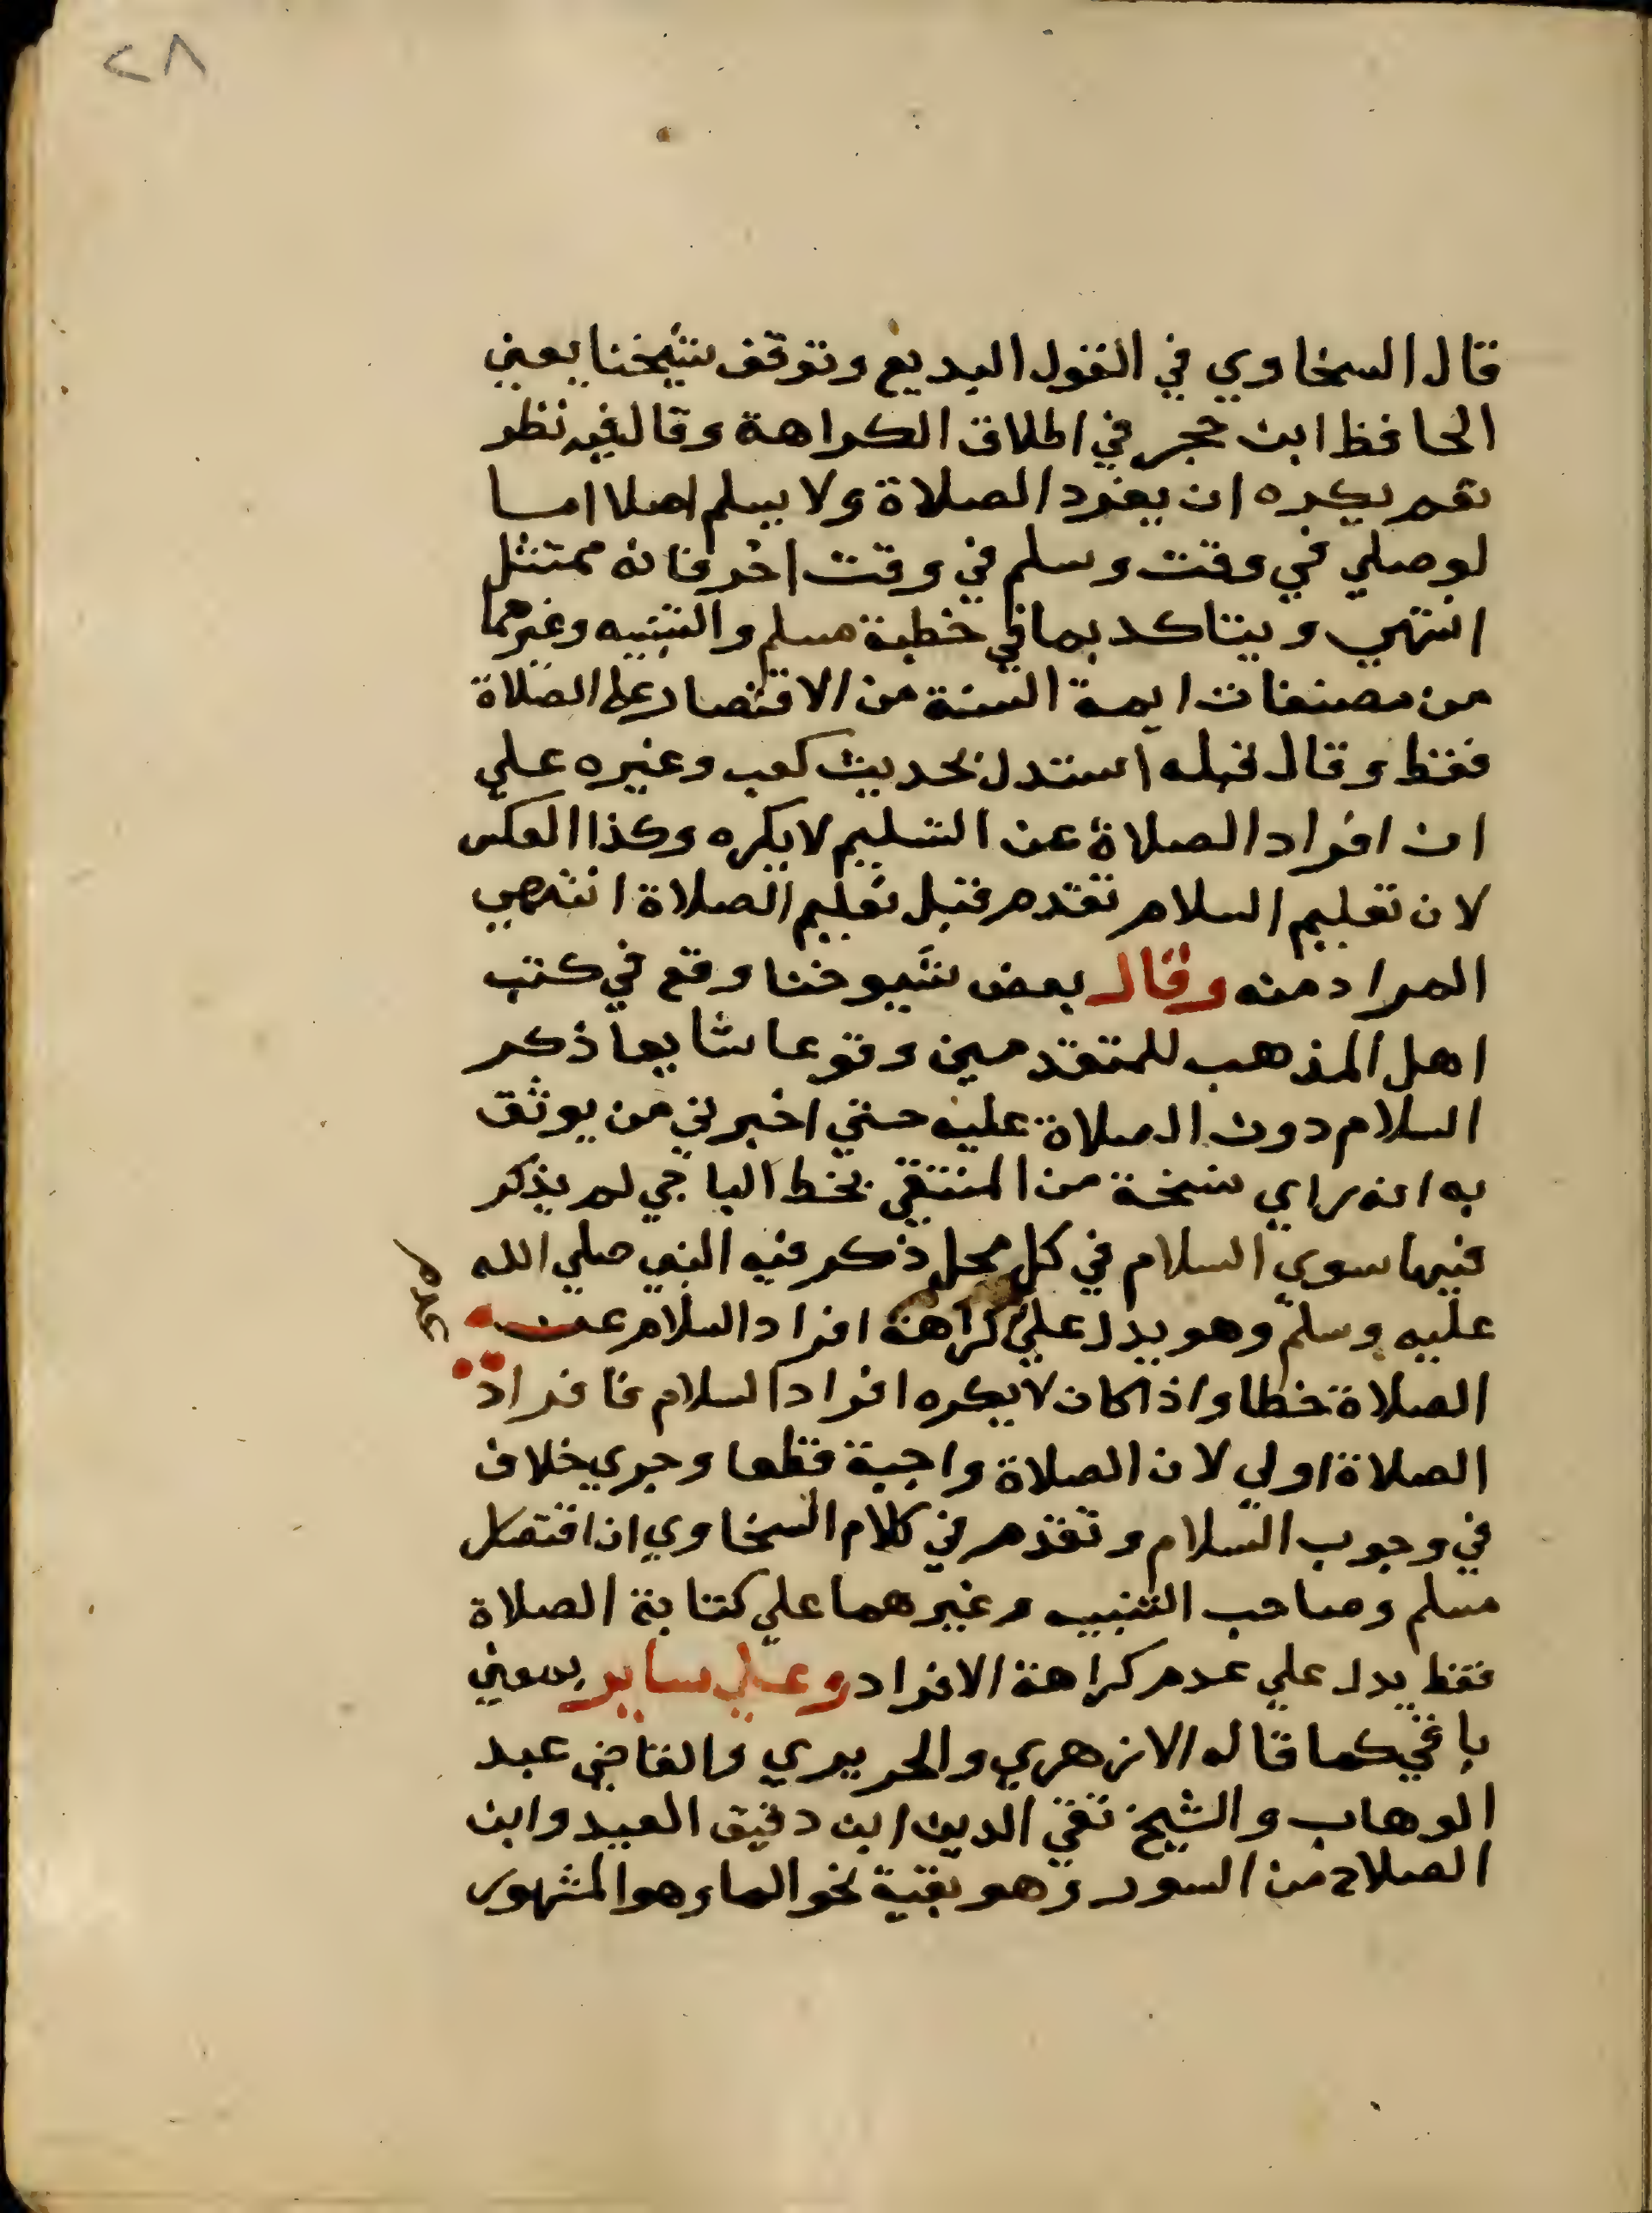 ٢٨
قال السخاوي في القول البديع وتوقف شيخنا يعني
الحافظ ابن حجر في اطلاق الكراهة وقال فيه نظر
نعم يكره ان يفرد الصلاة ولا يسلم اصلا اما
لو صلي في وقت وسلم في وقت اخر فانه ممتثل
انتهي ويتاكد بما في خطبة مسلم والتنبيه وغيرهما
من مصنفات ايمة السنة من الاقتصار على الصلاة
فقط وقال قبله استدل بحديث كعب وغيره علي
ان افراد الصلاة عن التسليم لا يكره وكذا العكس
لان تعليم السلام تقدم قبل تعليم الصلاة انتهي
المراد منه وقال بعض شيوخنا وقع في كتب
اهل المذهب للمتقدمين وقوعا شايعا ذكر
السلام دون الصلاة عليه حتي اخبرني من يوثق
به انه راي نسخة من المنتقي بخط الباجي لم يذكر
فيها سوي السلام في كل محل ذكر فيه النبي صلي الله
عليه وسلم وهو يدل علي كراهة افراد السلام عن
عدم
الصلاة خطا واذا كان لا يكره افراد السلام فافراد
الصلاة اولي لان الصلاة واجبة قطعا وجري خلاف
في وجوب السلام وتقدم في كلام السخاوي ان اقتصار
مسلم وصاحب التنبيه وغيرهما علي كتابة الصلاة
فقط يدل علي عدم كراهة الافراد وعلي ساير بمعني
باقي كما قاله الازهري والحريري والقاضي عبد
الوهاب والشيخ تقي الدين ابن دقيق العيد وابن
الصلاح من السور وهو بقية نحو الماء وهو المشهور